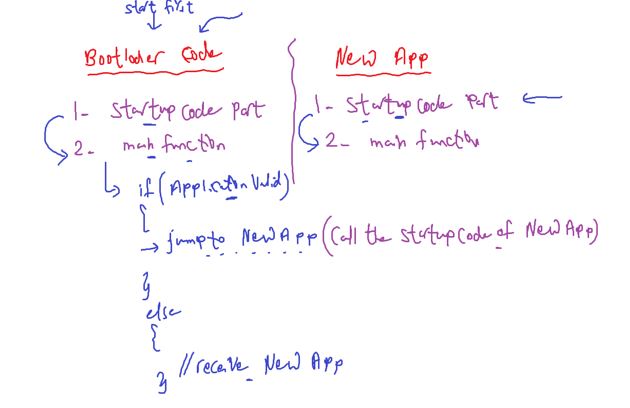 start first
Bootloder Code
1- Startup Code Part
2- main function
if (Application Valid)
{
→ jump to New App (Call the startup Code of New App)
}
else
{
} // receive New App
New App
1- Startup Code Part
2- main function